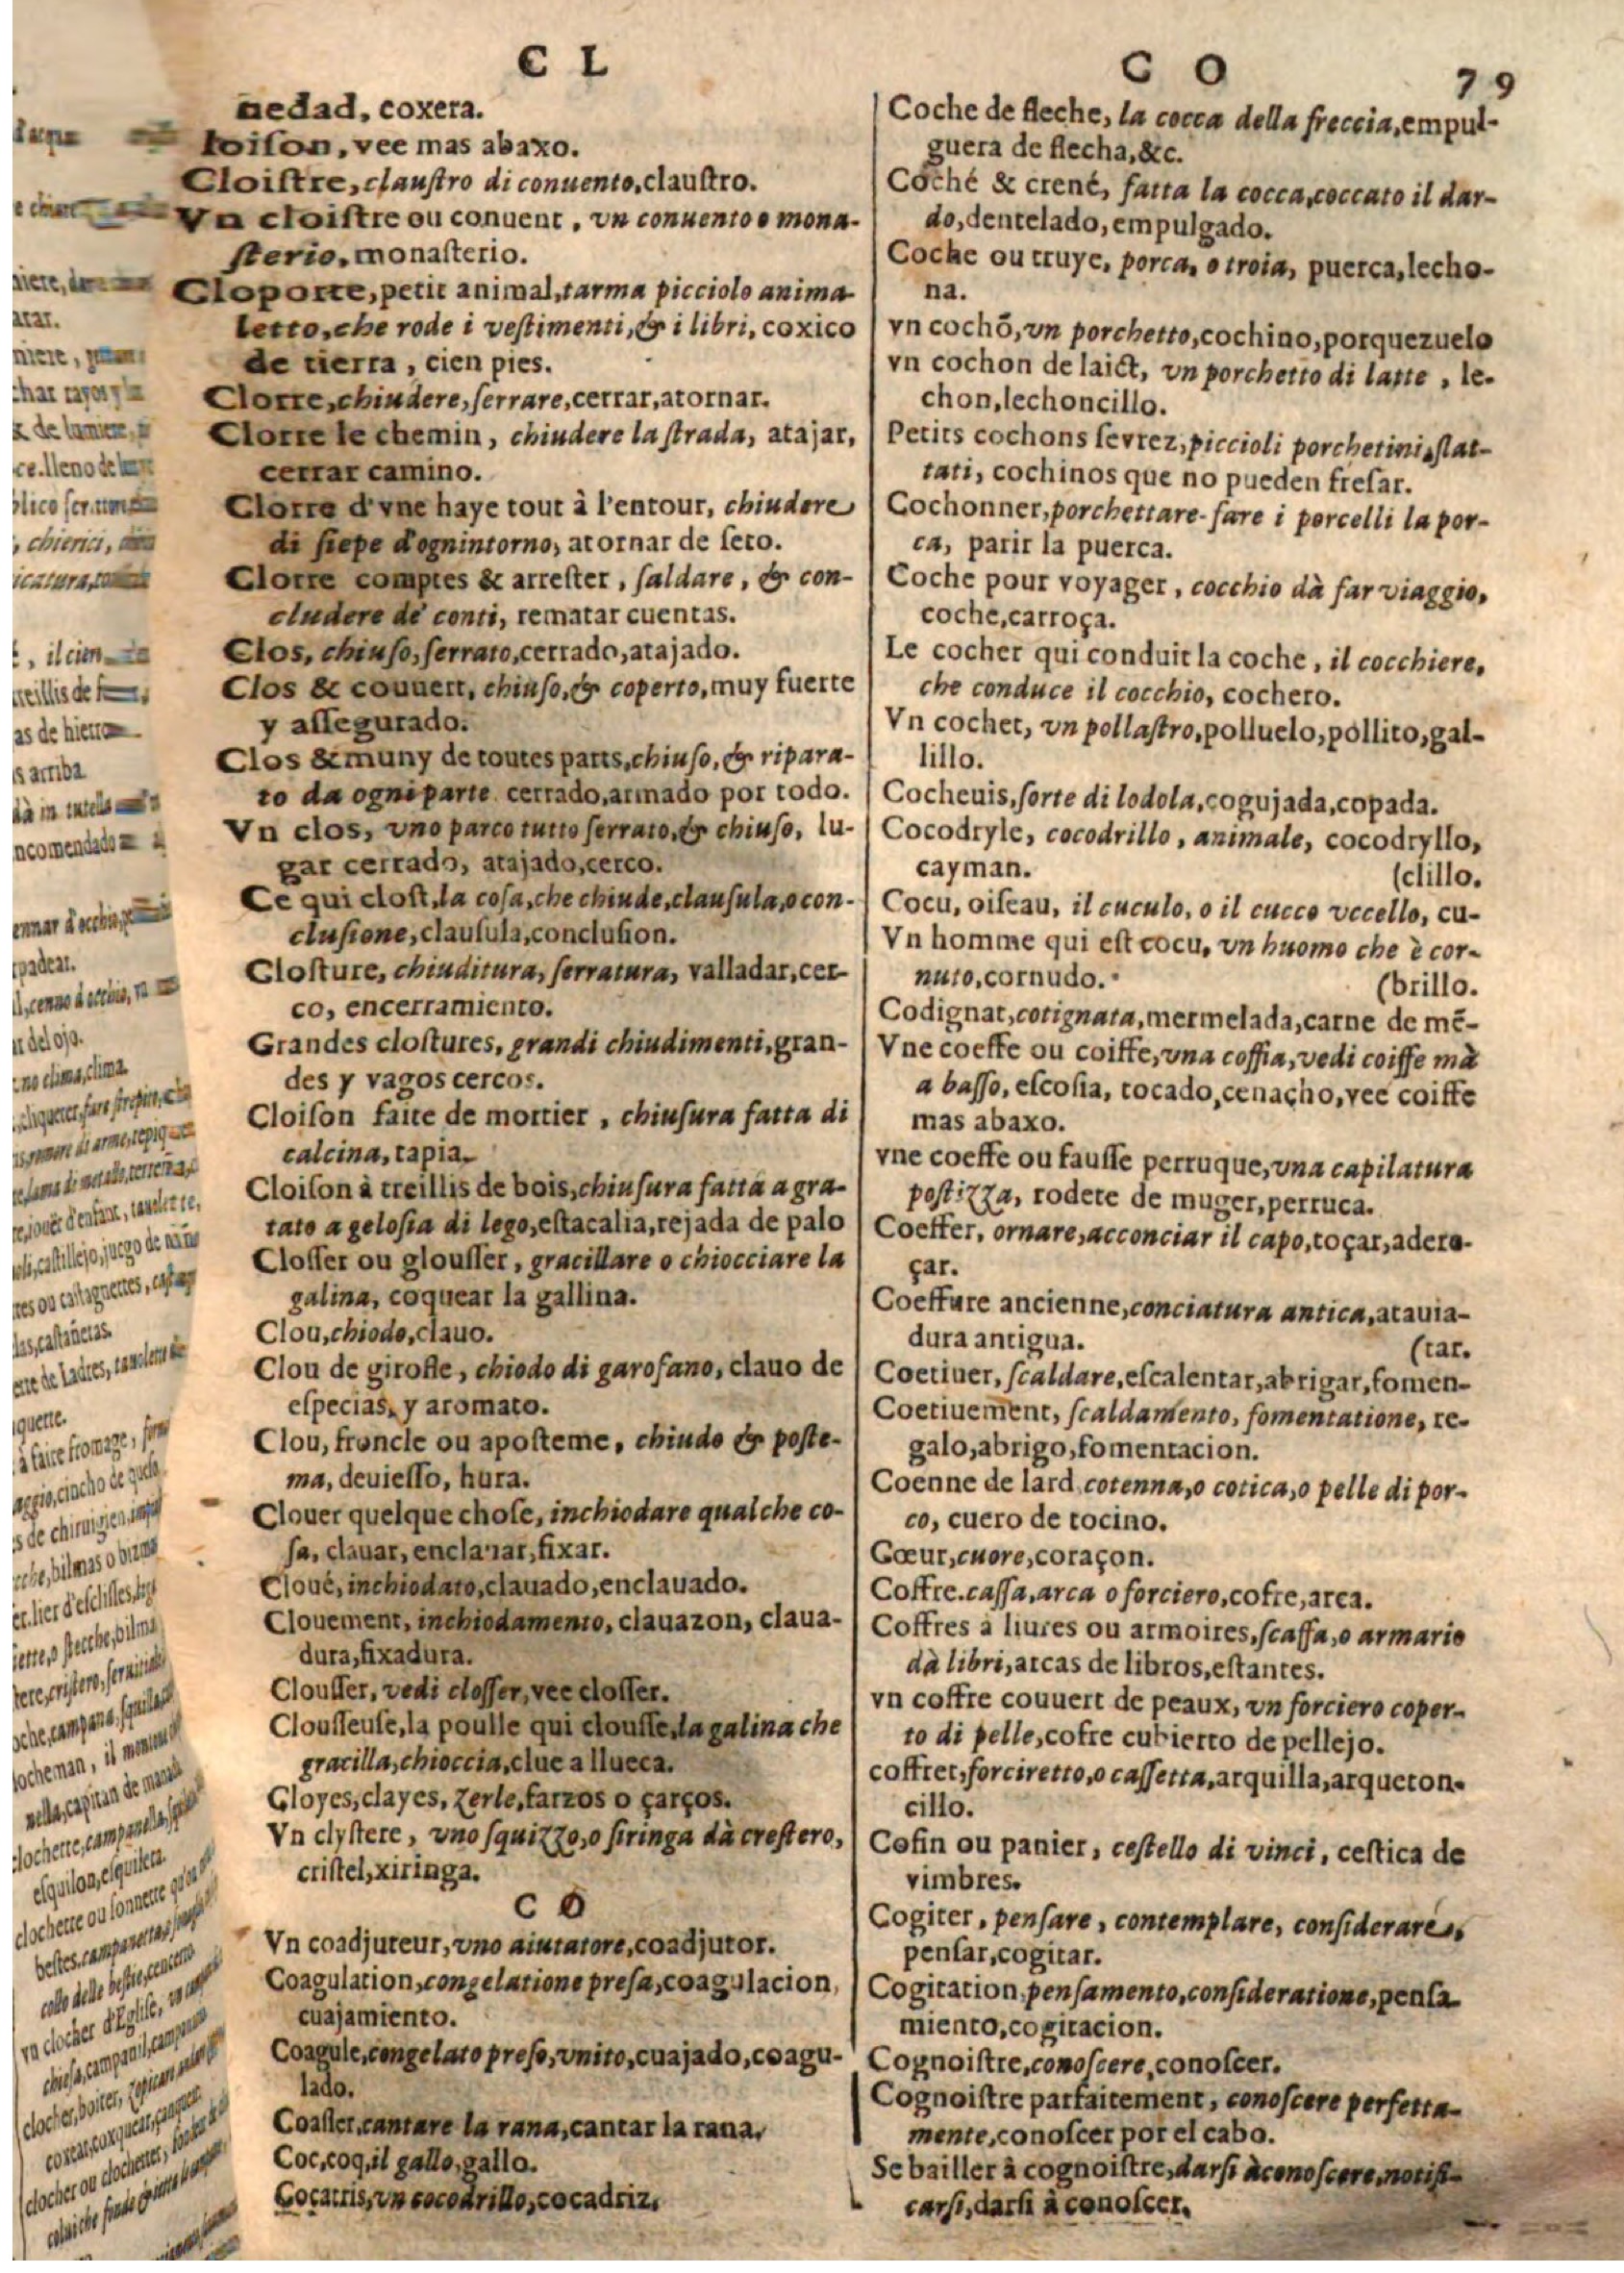 C L
nedad, coxera.
loiſon, vee mas abaxo.
Cloiſtre, clauſtro di conuento, clauſtro.
Vn cloiſtre ou conuent, vn conuento o mona-
ſterio, monaſterio.
Cloporte, petit animal, tarma picciolo anima-
letto, che rode i veſtimenti, & i libri, coxico
de tierra, cien pies.
Clorre, chiudere, ſerrare, cerrar, atornar.
Clorre le chemin, chiudere la ſtrada, atajar,
cerrar camino.
Clorre d'vne haye tout à l'entour, chiudere
di ſiepe d'ognintorno, atornar de ſeto.
Clorre comptes & arreſter, ſaldare, & con-
cludere de' conti, rematar cuentas.
Clos, chiuſo, ſerrato, cerrado, atajado.
Clos & couuert, chiuſo, & coperto, muy fuerte
y aſſegurado.
Clos & muny de toutes parts, chiuſo, & ripara-
to da ogni parte. cerrado, armado por todo.
Vn clos, vno parco tutto ſerrato, & chiuſo, lu-
gar cerrado, atajado, cerco.
Ce qui cloſt, la coſa, che chiude, clauſula, o con-
cluſione, clauſula, concluſion.
Cloſture, chiuditura, ſerratura, valladar, cer-
co, encerramiento.
Grandes cloſtures, grandi chiudimenti, gran-
des y vagos cercos.
Cloiſon faite de mortier, chiuſura fatta di
calcina, tapia.
Cloiſon à treillis de bois, chiuſura fatta a gra-
tato a geloſia di lego, eſtacalia, rejada de palo
Cloſſer ou glouſſer, gracillare o chiocciare la
galina, coquear la gallina.
Clou, chiodo, clauo.
Clou de girofle, chiodo di garofano, clauo de
eſpecias, y aromato.
Clou, froncle ou apoſteme, chiudo & poſte-
ma, deuieſſo, hura.
Clouer quelque choſe, inchiodare qualche co-
ſa, clauar, enclauar, fixar.
Cloué, inchiodato, clauado, enclauado.
Clouement, inchiodamento, clauazon, claua-
dura, fixadura.
Clouſſer, vedi cloſſer, vee cloſſer.
Clouſſeuſe, la poulle qui clouſſe, la galina che
gracilla, chioccia, clue a llueca.
Cloyes, clayes, zerle, farzos o çarços.
Vn clyſtere, vno ſquizzo, o ſiringa dà creſtero,
criſtel, xiringa.
C O
Vn coadjuteur, vno aiutatore, coadjutor.
Coagulation, congelatione preſa, coagulacion,
cuajamiento.
Coagule, congelato preſo, vnito, cuajado, coagu-
lado.
Coaſſer, cantare la rana, cantar la rana,
Coc, coq, il gallo, gallo.
Cocatris, vn cocodrillo, cocadriz.
C O 79
Coche de fleche, la cocca della freccia, empul-
guera de flecha, &c.
Coché & crené, fatta la cocca, coccato il dar-
do, dentelado, empulgado.
Coche ou truye, porca, o troia, puerca, lecho-
na.
vn cochõ, vn porchetto, cochino, porquezuelo
vn cochon de laict, vn porchetto di latte, le-
chon, lechoncillo.
Petits cochons ſevrez, piccioli porchetini, ſlat-
tati, cochinos que no pueden freſar.
Cochonner, porchettare-fare i porcelli la por-
ca, parir la puerca.
Coche pour voyager, cocchio dà far viaggio,
coche, carroça.
Le cocher qui conduit la coche, il cocchiere,
che conduce il cocchio, cochero.
Vn cochet, vn pollaſtro, polluelo, pollito, gal-
lillo.
Cocheuis, ſorte di lodola, cogujada, copada.
Cocodryle, cocodrillo, animale, cocodryllo,
cayman. (clillo.
Cocu, oiſeau, il cuculo, o il cucco vccello, cu-
Vn homme qui eſt cocu, vn huomo che è cor-
nuto, cornudo. (brillo.
Codignat, cotignata, mermelada, carne de mẽ-
Vne coeffe ou coiffe, vna coffia, vedi coiffe mà
a baſſo, eſcofia, tocado, cenacho, vee coiffe
mas abaxo.
vne coeffe ou fauſſe perruque, vna capilatura
poſtizza, rodete de muger, perruca.
Coeffer, ornare, acconciar il capo, toçar, adere-
çar.
Coeffure ancienne, conciatura antica, atauia-
dura antigua. (tar.
Coetiuer, ſcaldare, eſcalentar, abrigar, fomen-
Coetiuement, ſcaldamento, fomentatione, re-
galo, abrigo, fomentacion.
Coenne de lard, cotenna, o cotica, o pelle di por-
co, cuero de tocino.
Cœur, cuore, coraçon.
Coffre. caſſa, arca o forciero, cofre, arca.
Coffres à liures ou armoires, ſcaffa, o armario
dà libri, arcas de libros, eſtantes.
vn coffre couuert de peaux, vn forciero coper-
to di pelle, cofre cubierto de pellejo.
coffret, forciretto, o caſſetta, arquilla, arqueton-
cillo.
Cofin ou panier, ceſtello di vinci, ceſtica de
vimbres.
Cogiter, penſare, contemplare, conſiderare,
penſar, cogitar.
Cogitation, penſamento, conſideratione, penſa
miento, cogitacion.
Cognoiſtre, conoſcere, conoſcer.
Cognoiſtre parfaitement, conoſcere perfetta-
mente, conoſcer por el cabo.
Se bailler à cognoiſtre, darſi à conoſcere, notifi-
carſi, darſi à conoſcer.